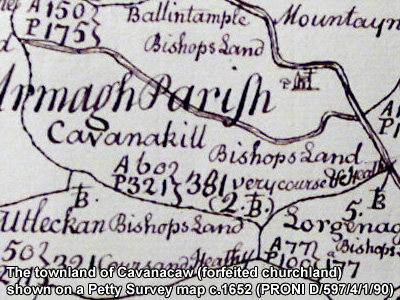 A 150
P 175
Ballintample
Mountayn
Bishops Land
Armagh Parish
Cavanakill
Bishops Land
A 60
P 321
381 very course & Heathy
(2.B.)
B.
Utleckan
Bishops Land
Lorgenag
5.
B.
50
321
Cours and Heathy
A 77
P 100
177
The townland of Cavanacaw (forfeited churchland)
shown on a Petty Survey map c.1652 (PRONI D/597/4/1/90)